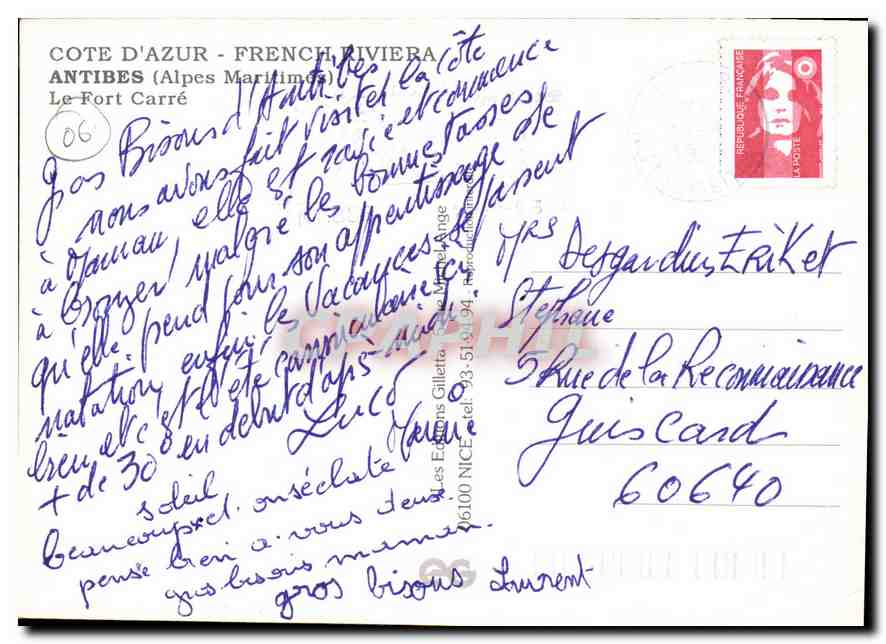 COTE D'AZUR - FRENCH RIVIERA
ANTIBES (Alpes Maritimes)
Le Fort Carré
06
Gros Bisous d'Antibes
nous avons fait visiter la côte
à Maman, elle est ravie et commence
à bronzer malgré les bonnes tasses
qu'elle prend pour son apprentissage de
natation, enfin les vacances se passent
bien et c'est l'été caniculaire ici
+ de 30° en début d'après-midi.
Luco
Marine
soleil
beaucoup et. on s'éclate
pense bien a. vous deux.
gros bisous maman.
gros bisous Laurent
Les Editions Gilletta Michel Ange
06100 NICE tel: 93-51-94-94 Reproduction
CPAPHIL
REPUBLIQUE FRANÇAISE
LA POSTE
Mrs Desgardins ERIK et
Stephane
5 Rue de la Reconnaissance
Guiscard
60640